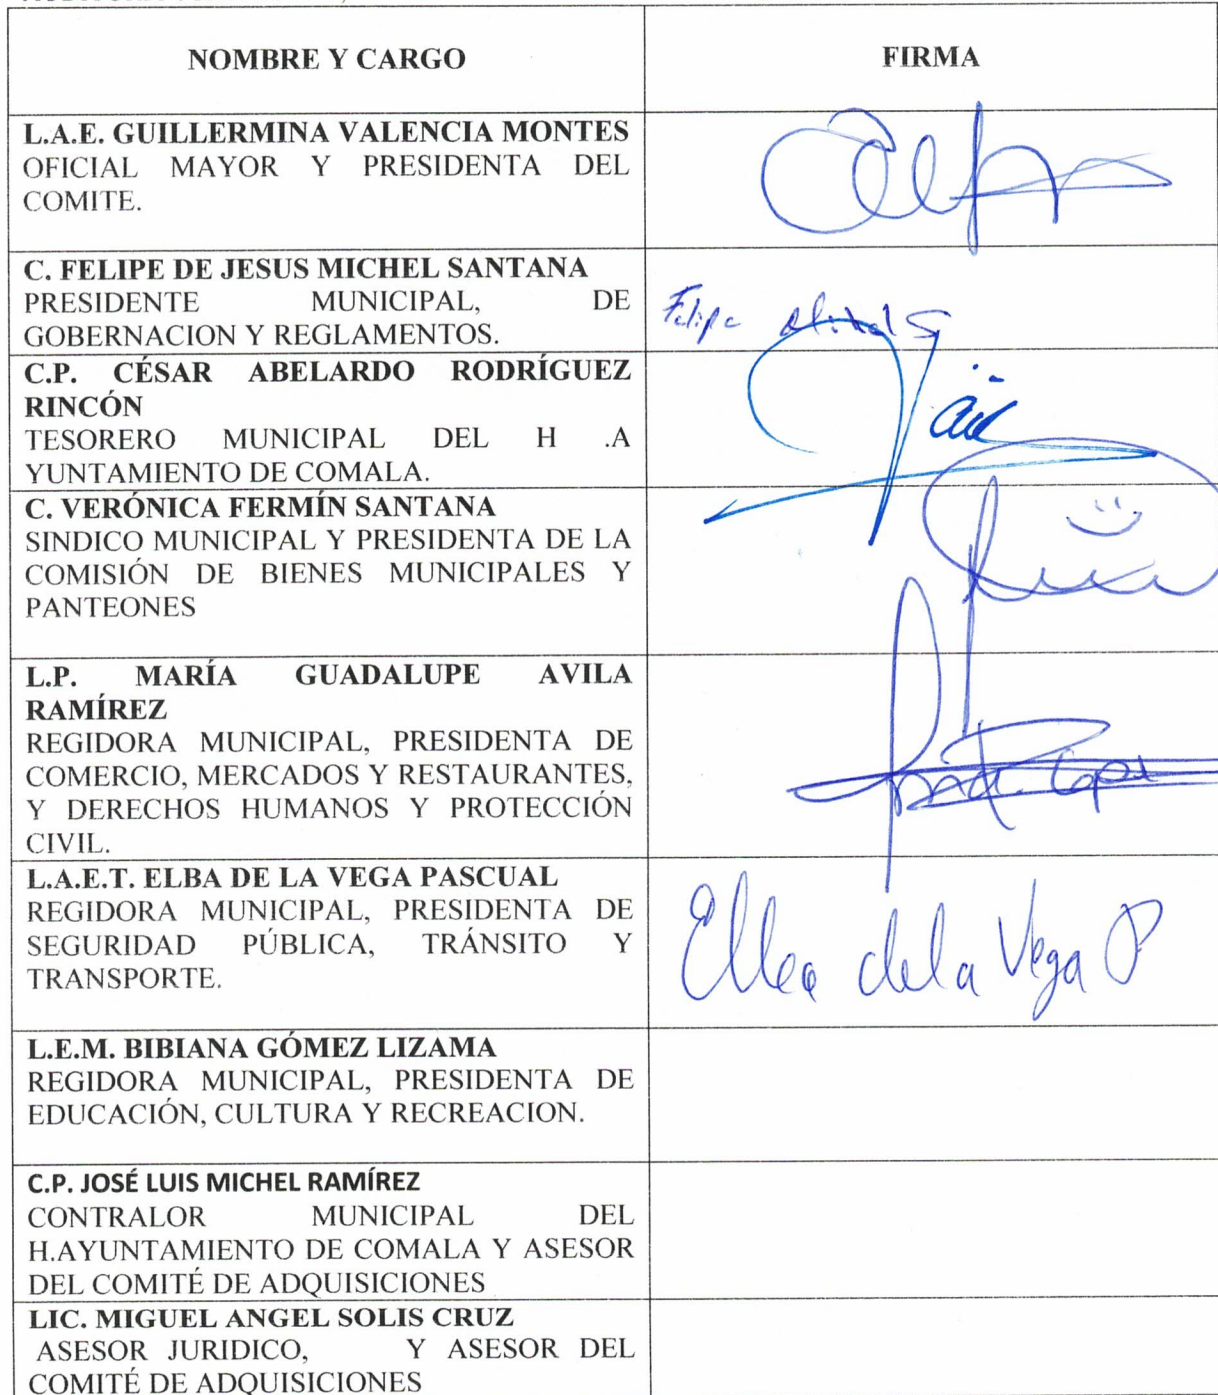 NOMBRE Y CARGO
FIRMA
L.A.E. GUILLERMINA VALENCIA MONTES
OFICIAL MAYOR Y PRESIDENTA DEL
COMITE.
C. FELIPE DE JESUS MICHEL SANTANA
PRESIDENTE MUNICIPAL, DE
GOBERNACION Y REGLAMENTOS.
Felipe
C.P. CÉSAR ABELARDO RODRÍGUEZ
RINCÓN
TESORERO MUNICIPAL DEL H .A
YUNTAMIENTO DE COMALA.
C. VERÓNICA FERMÍN SANTANA
SINDICO MUNICIPAL Y PRESIDENTA DE LA
COMISIÓN DE BIENES MUNICIPALES Y
PANTEONES
L.P. MARÍA GUADALUPE AVILA
RAMÍREZ
REGIDORA MUNICIPAL, PRESIDENTA DE
COMERCIO, MERCADOS Y RESTAURANTES,
Y DERECHOS HUMANOS Y PROTECCIÓN
CIVIL.
L.A.E.T. ELBA DE LA VEGA PASCUAL
REGIDORA MUNICIPAL, PRESIDENTA DE
SEGURIDAD PÚBLICA, TRÁNSITO Y
TRANSPORTE.
Elba de la Vega P
L.E.M. BIBIANA GÓMEZ LIZAMA
REGIDORA MUNICIPAL, PRESIDENTA DE
EDUCACIÓN, CULTURA Y RECREACION.
C.P. JOSÉ LUIS MICHEL RAMÍREZ
CONTRALOR MUNICIPAL DEL
H.AYUNTAMIENTO DE COMALA Y ASESOR
DEL COMITÉ DE ADQUISICIONES
LIC. MIGUEL ANGEL SOLIS CRUZ
ASESOR JURIDICO, Y ASESOR DEL
COMITÉ DE ADQUISICIONES